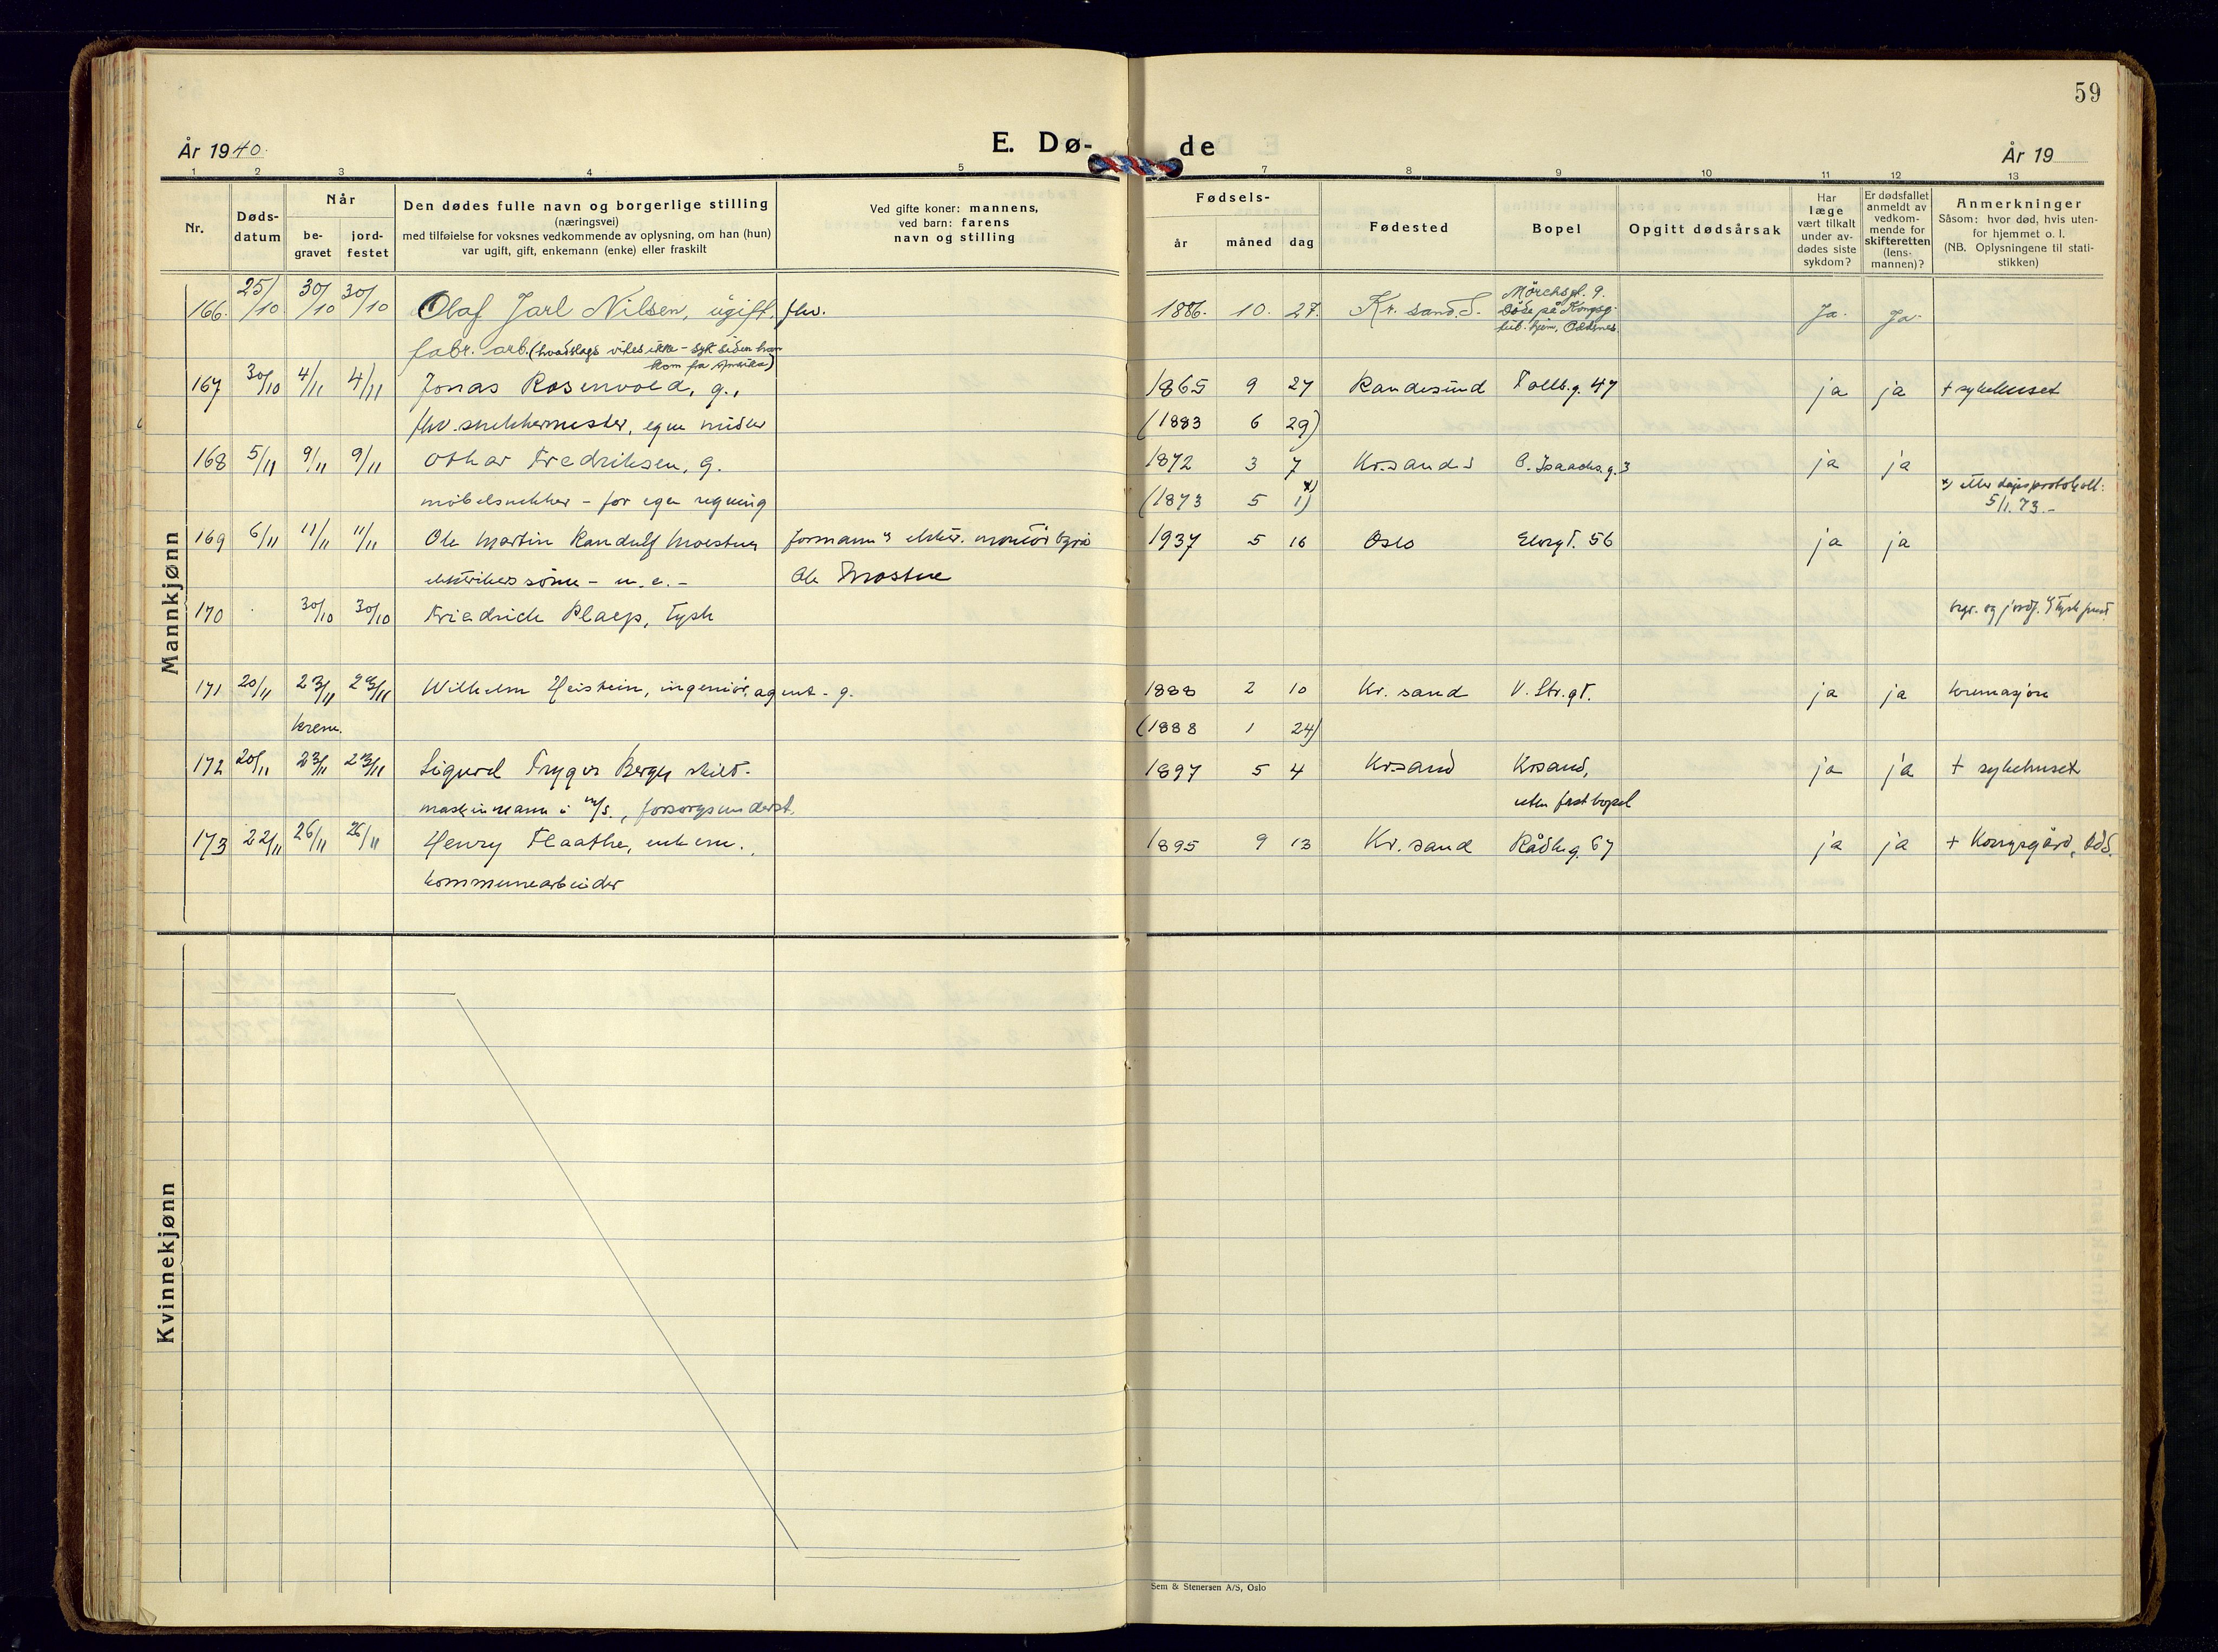 59
År 1940.
E. Dø-
de
År 19
1 2 3 4 5 7 8 9 10 11 12 13
Nr.
Døds-
datum
Når
be-
gravet
jord-
festet
Den dødes fulle navn og borgerlige stilling
(næringsvei)
med tilføielse for voksnes vedkommende av oplysning, om han (hun)
var ugift, gift, enkemann (enke) eller fraskilt
Ved gifte koner: mannens,
ved barn: farens
navn og stilling
Fødsels-
år måned dag
Fødested
Bopel
Opgitt dødsårsak
Har
læge
vært tilkalt
under av-
dødes siste
sykdom?
Er dødsfallet
anmeldt av
vedkom-
mende for
skifteretten
(lens-
mannen)?
Anmerkninger
Såsom: hvor død, hvis uten-
for hjemmet o. l.
(NB. Oplysningene til stati-
stikken)
Mannkjønn
166. 25/10 30/10 30/10 Olaf Jarl Nilsen, ugift, fhv. 1886. 10. 27. Kr. sand. S. Mörchsgt. 9. Ja. Ja.
Döde på Kongsg.
tub. hjem, Oddernes
fabr. arb. (hvadslags vites ikke - syk siden han
kom fra Amerika)
167 30/10 4/11 4/11 Jonas Rosenvold, g., 1865 9 27 Randesund Tollb.g. 47 ja ja + sykehuset
fhv. snekkermester, egne midler (1883 6 29)
168 5/11 9/11 9/11 Othar Fredriksen, g. 1872 3 7 Kr.sand S C. Isaachs.g. 3 ja ja
møbelsnekker - for egen regning (1873 5 1) x)
x) etter dåpsprotokoll:
5/1. 73.-
169 6/11 11/11 11/11 Ole Martin Randulf Moestue formann i elektr. montörbyrå 1937 5 16 Oslo Elvegt. 56 ja ja
elektrikers sönn - u. e. - Ole Mostue
170 30/10 30/10 Friedrich Plaep, tysk begr. og jordf. af tysk prest
171 20/11 23/11 23/11 Wilhelm Heistein, ingeniör, agent - g. 1888 2 10 Kr. sand V. Str.gt. ja ja kremasjon
krem. (1888 1 24)
172 20/11 23/11 23/11 Sigurd Trygve Berge skilt. 1897 5 4 Kr.sand Kr.sand, ja ja + sykehuset
maskinmann i m/s., forsorgsunderst. uten fast bopel
173 22/11 26/11 26/11 Henry Flaathe, enkem., 1895 9 13 Kr. sand Rådh.g. 67 ja ja + Kongsgård, Odd.
kommunearbeider
Kvinnekjønn
Sem & Stenersen A/S, Oslo